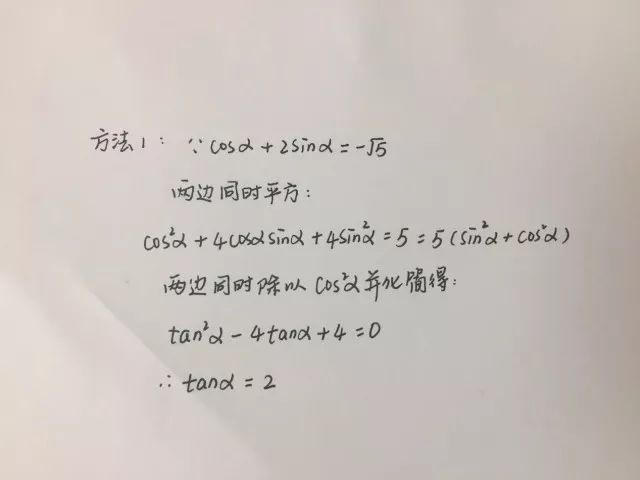 方法1: ∵ cosα + 2sinα = -√5
两边同时平方:
cos²α + 4cosαsinα + 4sin²α = 5 = 5(sin²α + cos²α)
两边同时除以 cos²α 并化简得:
tan²α - 4tanα + 4 = 0
∴ tanα = 2